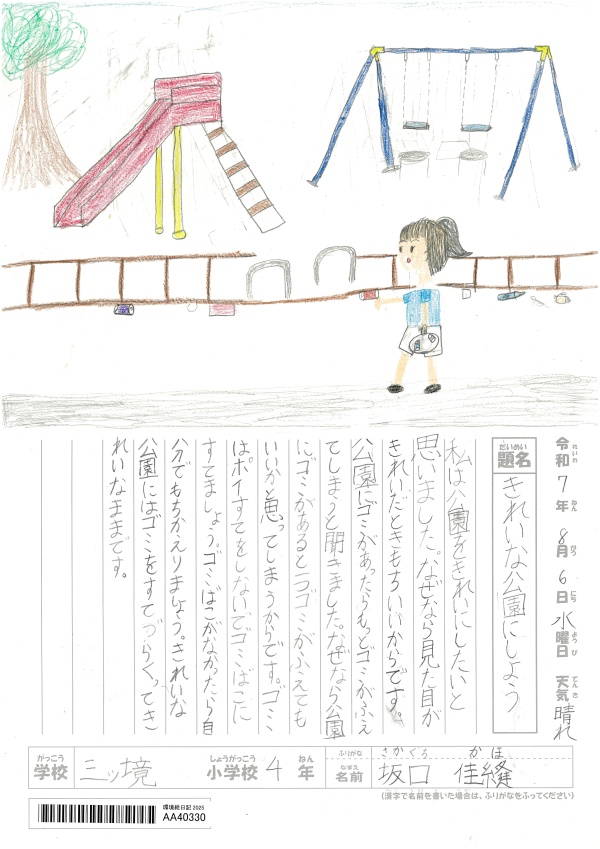 令和7年8月6日水曜日 天気晴れ
れいわ ねん がつ にち ようび てんき
だいめい
題名 きれいな公園にしよう
私は公園をきれいにしたいと
思いました。なぜなら見た目が
きれいだときもちいいからです。
公園にゴミがあったらもっとゴミがふえ
てしまうと聞きました。なぜなら公園
にゴミがあると一つゴミがふえても
いいかと思ってしまうからです。ゴミ
はポイすてをしないでゴミばこに
すてましょう。ゴミばこがなかったら自
分でもちかえりましょう。きれいな
公園にはゴミをすてづらくってき
れいなままです。
がっこう しょうがっこう ねん
学校 三ッ境 小学校 4年
ふりがな さかぐち かほ
なまえ
名前 坂口 佳縫
(漢字で名前を書いた場合は、ふりがなをふってください)
環境絵日記 2025
AA40330